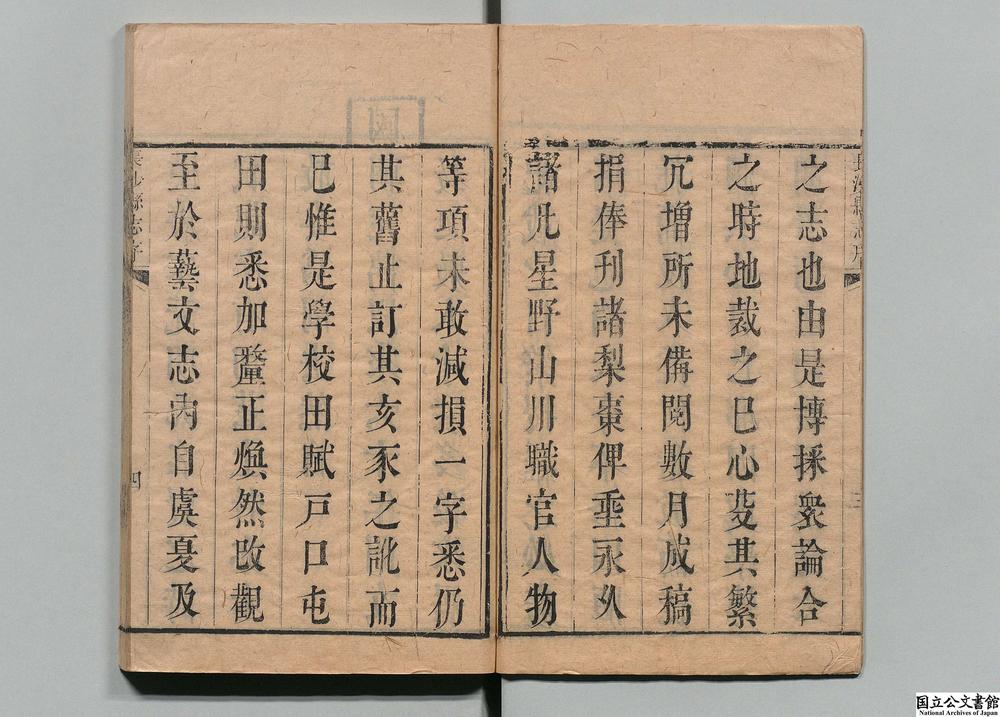 長沙縣志序
之志也由是博採衆論合
之時地裁之已心芟其繁
冗增所未備閱數月成稿
捐俸刊諸梨棗俾垂永久
諸凡星野山川職官人物
三
等項未敢減損一字悉仍
其舊止訂其亥豕之訛而
已惟是學校田賦戶口屯
田則悉加釐正煥然改觀
至於藝文志內自虞夏及
長沙縣志序
四
国立公文書館
National Archives of Japan